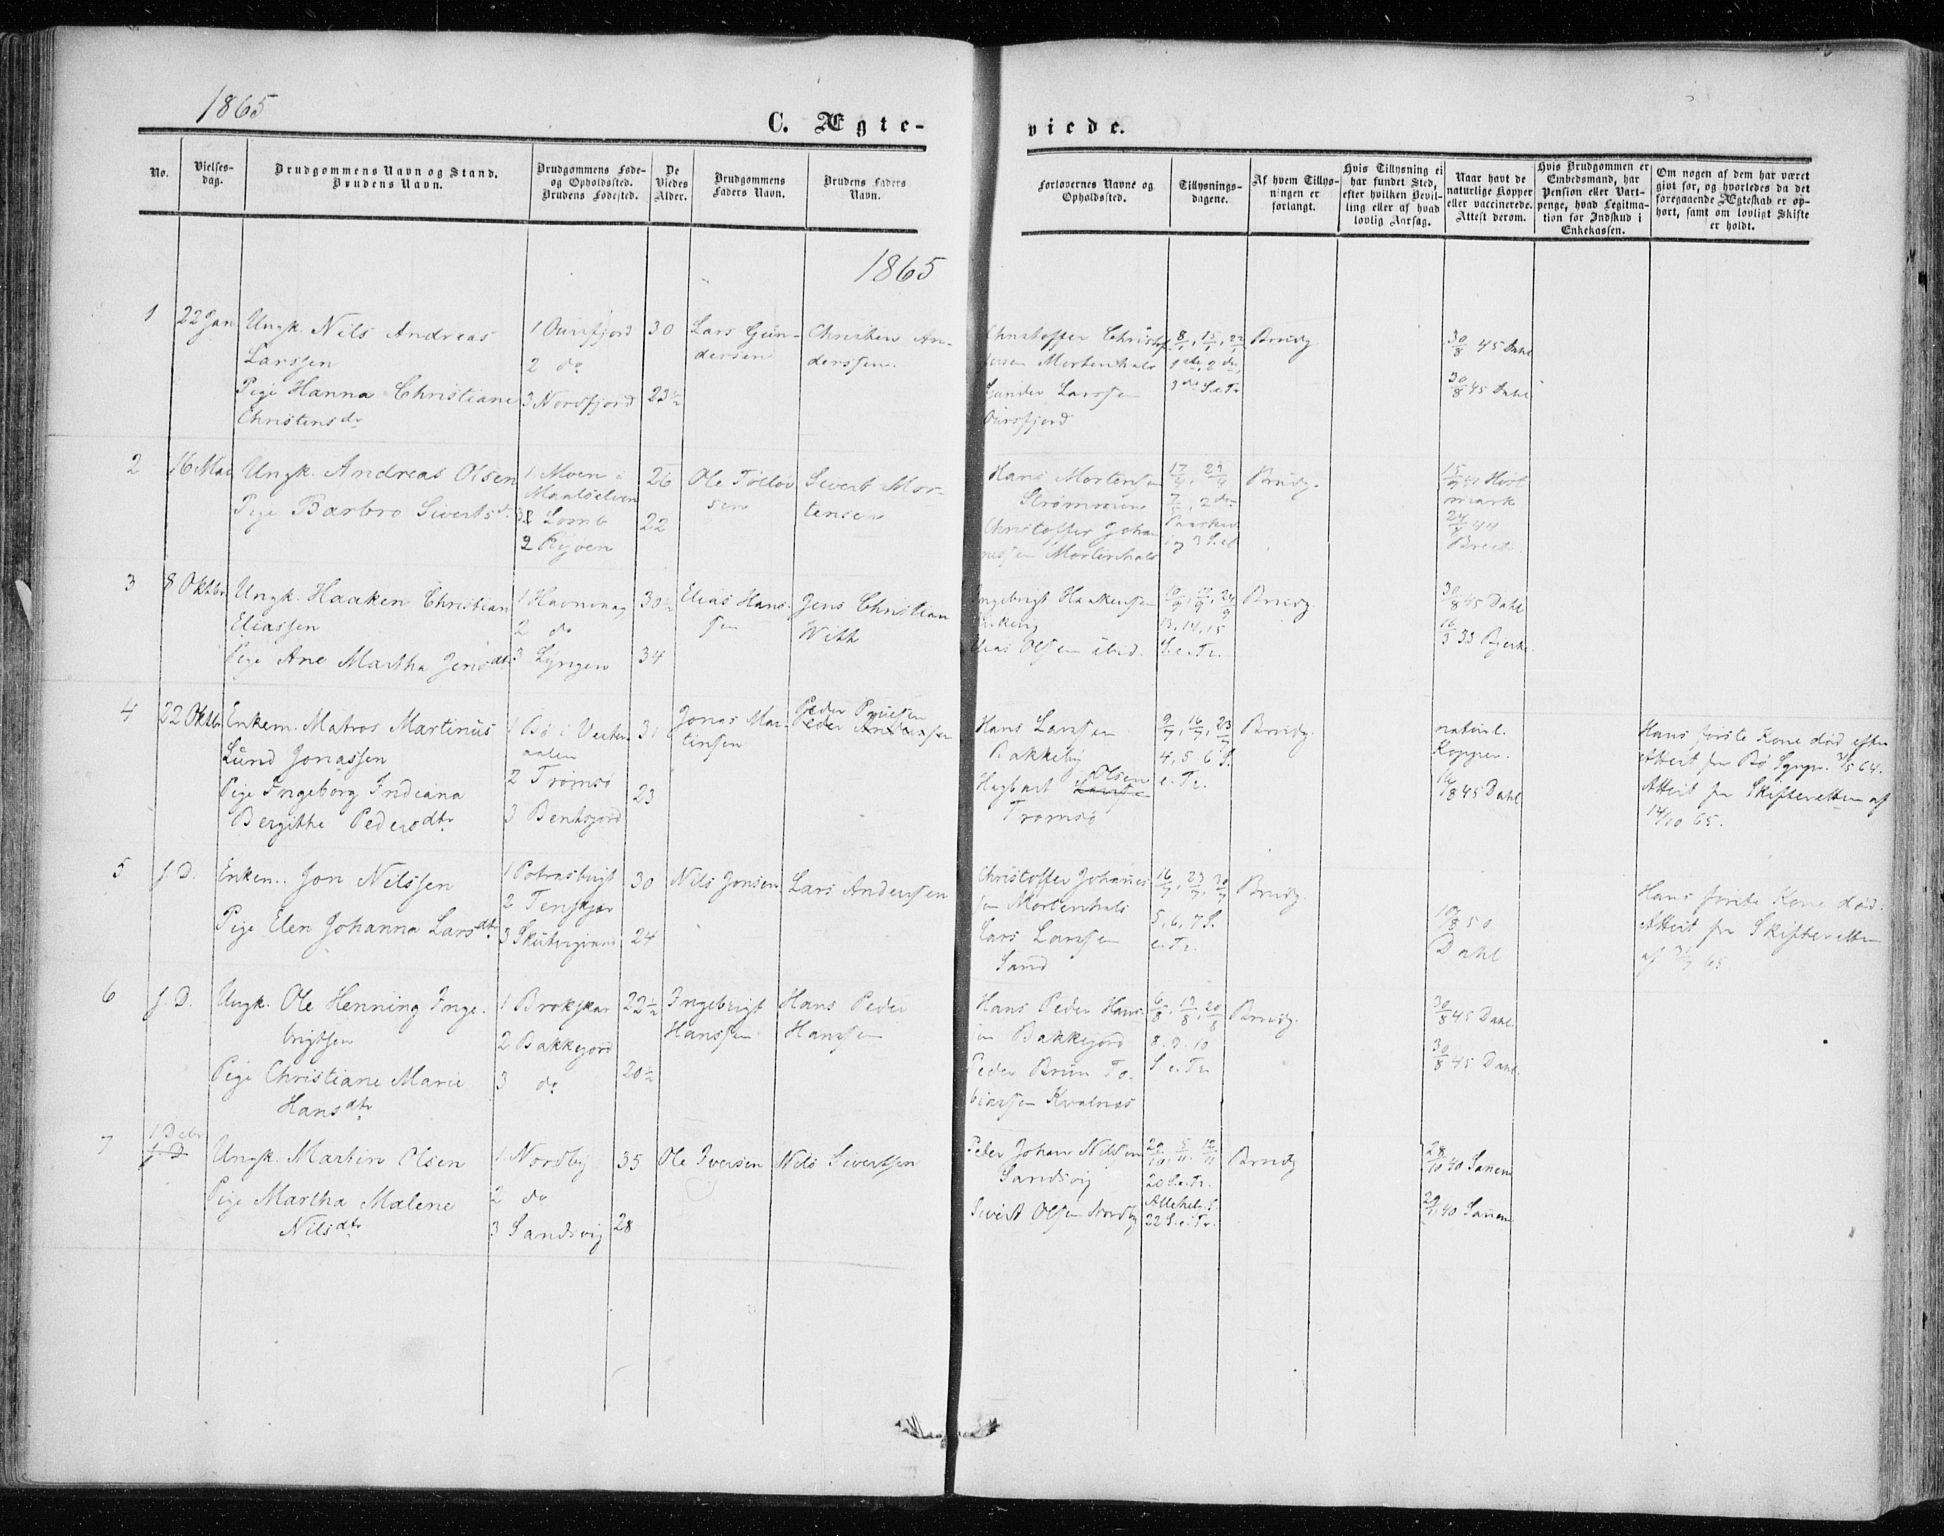 1865
C. Ægte-
viede.
No.
Vielses-
dag.
Brudgommens Navn og Stand.
Brudens Navn.
Brudgommens Føde-
og Opholdssted.
Brudens Fødested.
De
Viedes
Alder.
Brudgommens
Faders Navn.
Brudens Faders
Navn.
Forlovernes Navne og
Opholdssted.
Tillysnings-
dagene.
Af hvem Tillys-
ningen er
forlangt.
Hvis Tillysning ei
har fundet Sted,
efter hvilken Bevil-
ling eller af hvad
lovlig Aarsag.
Naar havt de
naturlige Kopper
eller vaccinerede.
Attest derom.
Hvis Brudgommen er
Embedsmand, har
Pension eller Vart-
penge, hvad Legitima-
tion for Indskud i
Enkekassen.
Om nogen af dem har været
gift før, og hvorledes da det
foregaaende Ægteskab er op-
hørt, samt om lovligt Skifte
er holdt.
1865
1
22 Jan
Ungk. Nils Andreas
Larssen
Pige Hanna Christiane
Christensdtr
1 Oursfjord
2 do
3 Nordfjord
30
23½
Lars Gun-
dersen
Christen An-
derssen.
Christoffer Christof-
fersen Mortenhals
Gunder Larssen
Oursfjord
8/1, 15/1, 22/1
S.e.Tr
Brudg.
30/8 45 Dahl
30/8 45 Dahl
2
16 Mai
Ungk. Andreas Olsen
Pige Barbro Sivertsd.
1 Moen i
Maalselven
3 Lomb
2 Rejoen
26
22
Ole Tollov
sen
Sivert Mor-
tensen
Hans Mortensen
Strømmen
Christoffer Johan
nessen Mortenhals
Brudg.
3
8 Oktbr
Ungk. Haaken Christian
Eliassen
Pige Ane Martha Jensdtr
1 Havnvaag
2 do
3 Lyngen
30½
34
Elias Hans-
sen
Jens Christian
With
Ingebrigt Haakensen
Elias Olsen ibid.
10/9, 17/9, 24/9
13, 14, 15
S.e.Tr.
Brudg.
30/8 45 Dahl
16/3 33 Bjerke.
4
22 Oktbr
Enkem. Matros Martinus
Lund Jonassen
Pige Ingeborg Indiana
Bergitthe Pedersdtr
1 Bø i Vester
aalen
2 Tromsø
3 Bentsjord
31
23
Jonas Mar-
tinsen
Peder Poulsen
Peder Anderssen
Hans Larssen
Bakkeby
Hegbart Olsen
Tromsø
9/7, 16/7, 23/7
4, 5 6 S.
e. Tr.
Brudg.
naturl.
Kopper.
16/8 45 Dahl
Hans første Kone død efter
Attest fra Bø Sgnpr. 3/5 64.
Attest fra Skifteretten af
14/10 65.
5
f. D.
Enkem. Jon Nilssen
Pige Elen Johanna Larsdtr
1 Potrasbugt
2 Tenskjær
3 Skutvigvand
30
24
Nils Jonsen
Lars Anderssen
Christoffer Johannes
sen Mortenhals
Lars Larssen
Sand
16/7, 23/7, 30/7
5, 6, 7 S.
e. Tr.
Brudg.
10/8 50
Dahl
Hans første Kone død.
Attest fra Skifteretten
af 3/7 65
6
f. D.
Ungk. Ole Henning Inge-
brigtsen
Pige Christiane Marie
Hansdtr
1 Brokskar
2 Bakkejord
3 do
22½
20½
Ingebrigt
Hanssen
Hans Peder
Hanssen
Hans Peder Hans-
sen Bakkejord
Peder Brun To-
biassen Kvalnæs
6/8, 13/8, 20/8
8. 9. 10
S. e. Tr.
Brudg.
30/8 45 Dahl.
30/8 45 Dahl.
7
1 Debr
f D
Ungk. Martin Olsen
Pige Martha Malene
Nilsdtr
1 Nordby
2 do
3 Sandvig
35
28
Ole Iversen
Nils Sivertsen
Peder Johan Nilssen
Sandvig
Sivert Olsen Nordby
29/10, 5/11, 12/11
20 S.e.Tr.
Allehelg. S.
22 S.e.Tr.
Brudg